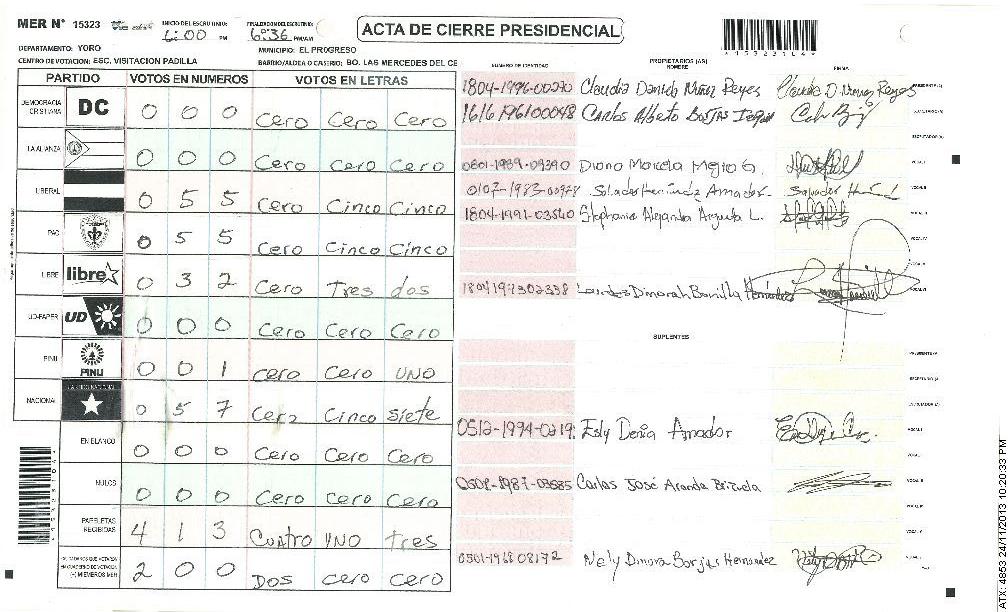 MER N° 15323
INICIO DEL ESCRUTINIO: 6:00 PM
FINALIZACION DEL ESCRUTINIO: 6:36 PM/AM
ACTA DE CIERRE PRESIDENCIAL
DEPARTAMENTO: YORO
MUNICIPIO: EL PROGRESO
CENTRO DE VOTACION: ESC. VISITACION PADILLA
BARRIO/ALDEA O CASERIO: BO. LAS MERCEDES DEL CE
PARTIDO VOTOS EN NUMEROS VOTOS EN LETRAS
DEMOCRACIA CRISTIANA DC 0 0 0 Cero Cero Cero
LA ALIANZA 0 0 0 Cero Cero Cero
LIBERAL 0 5 5 Cero Cinco Cinco
PAC 0 5 5 Cero Cinco Cinco
LIBRE libre 0 3 2 Cero Tres dos
UD-FAPER UD 0 0 0 Cero Cero Cero
PINU PINU 0 0 1 cero Cero UNO
NACIONAL 0 5 7 Cero Cinco Siete
EN BLANCO 0 0 0 Cero Cero Cero
NULOS 0 0 0 Cero Cero Cero
PAPELETAS RECIBIDAS 4 1 3 Cuatro UNO Tres
2 0 0 DOS cero cero
NUMERO DE IDENTIDAD
PROPIETARIOS (AS)
NOMBRE
FIRMA
Claudia Daniela Nuñez Reyes
1616 1961 00048 Carlos Alberto
Diana Marcela
Salvador Hernández Amador
1804-1991-03540 Stephanie Alejandra L.
Lourdes Dinorah Bonilla Hernández
SUPLENTES
0512-1994-0219 Esly Denia Amador
Carlos José Aranda Brizuela
0501-1968 08172 Nely Dinora Borjas Hernandez
ATX: 4853 24/11/2013 10:20:33 PM